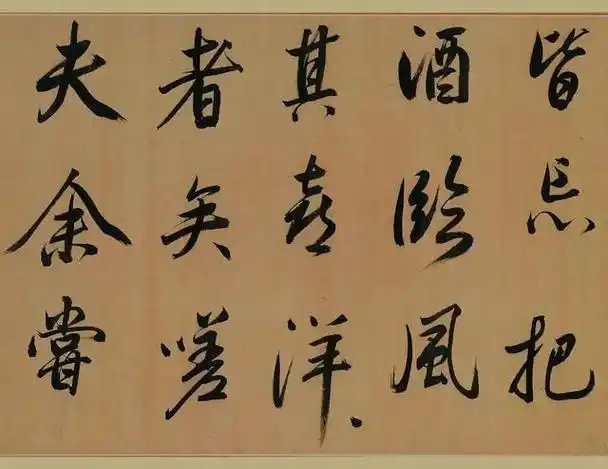 皆忘把
酒臨風
其喜洋、
者矣嗟
夫余嘗